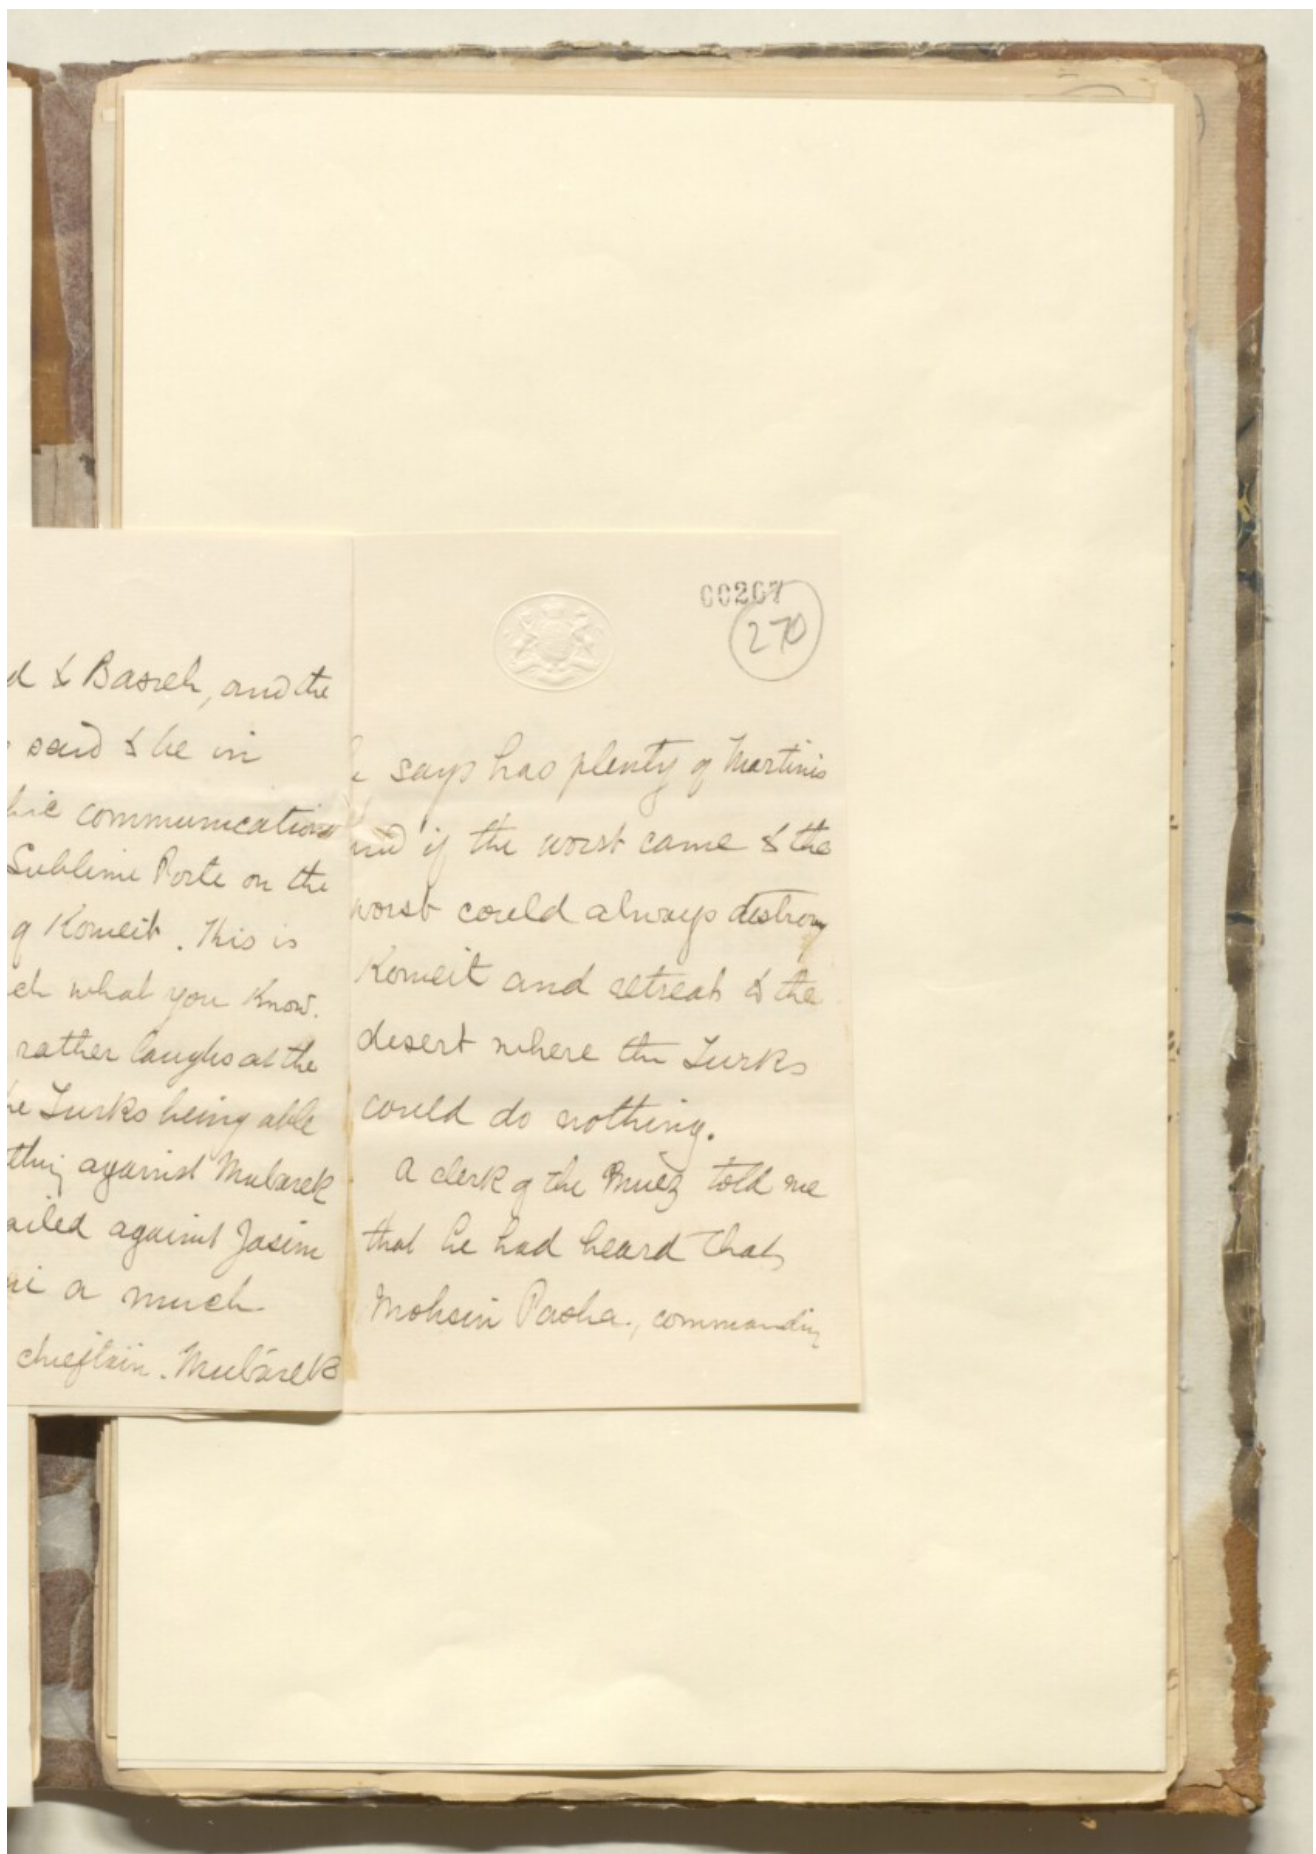 d & Basreh, and the
said & be in
communications
Sublime Porte on the
of Koweit. This is
what you know.
rather laughs at the
Turks being able
against Mubarek
ailed against Jasim
a much
chieftain. Mubarek
00267
270
says has plenty of Martinis
and if the worst came & the
worst could always destroy
Koweit and retreat & the
desert where the Turks
could do nothing.
A clerk of the told me
that he had heard that
Mohsin Pasha, commanding